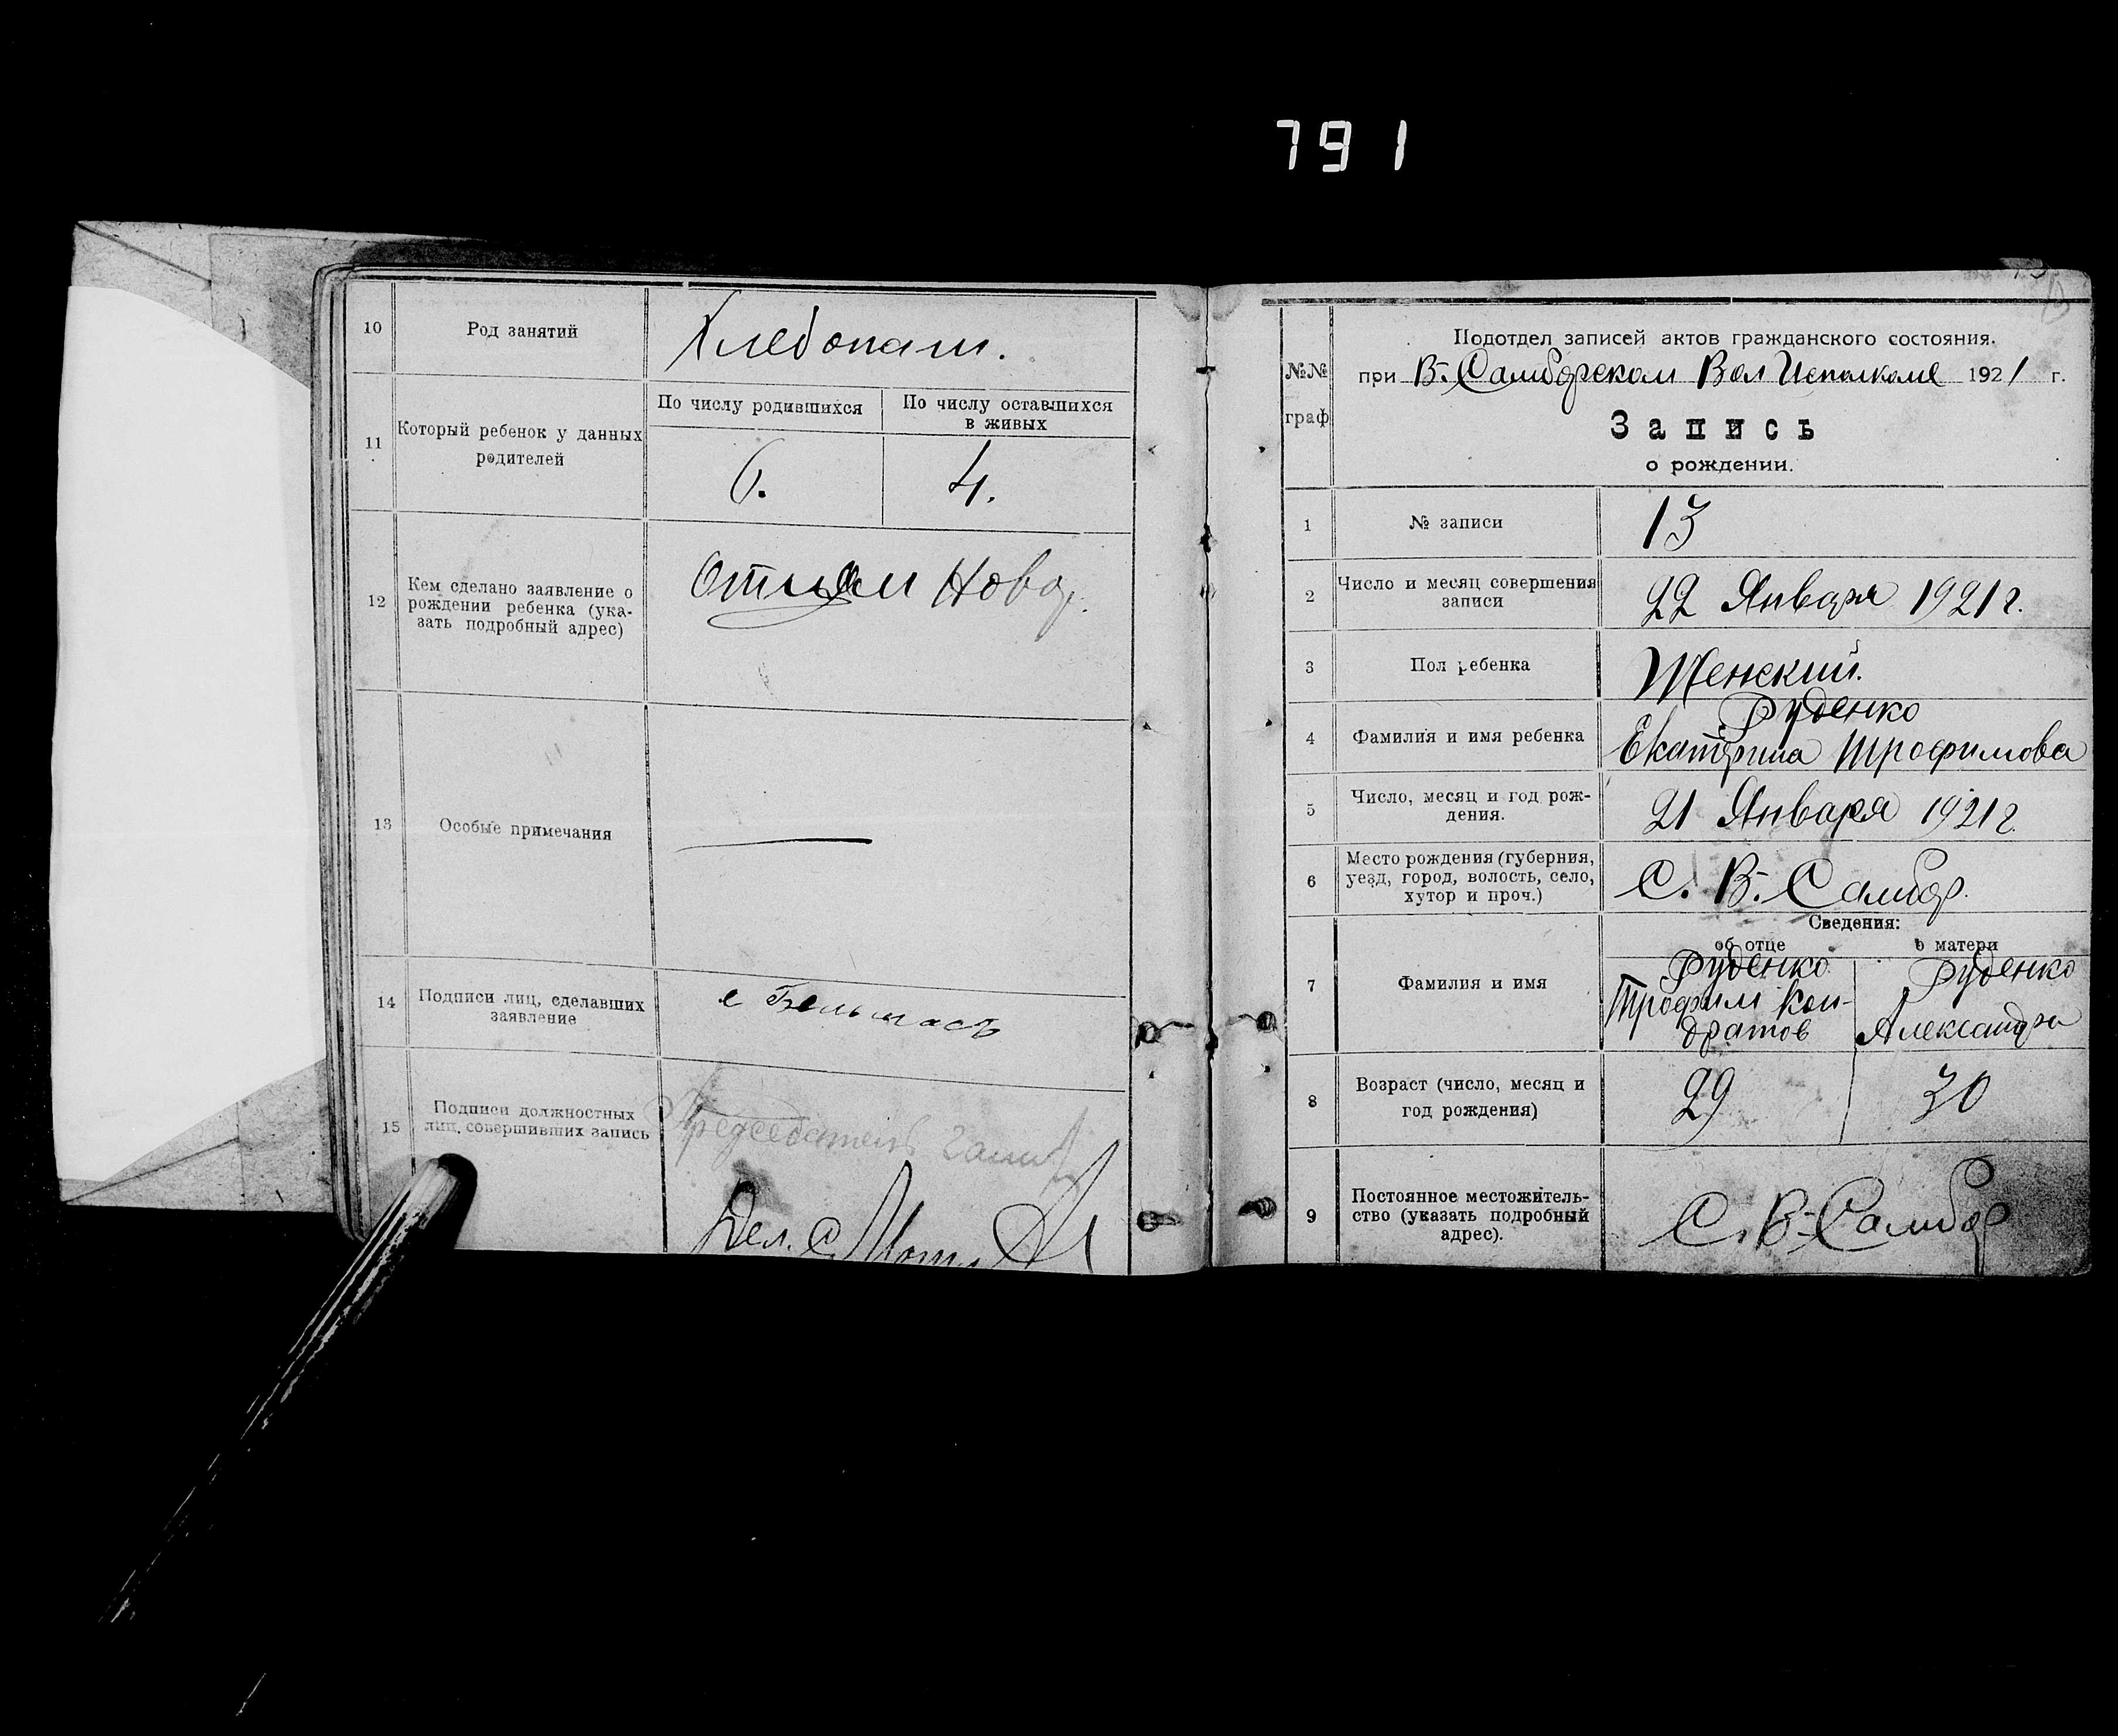 791
10
Род занятий
Хлебопаш.
11
Который ребенок у данных
родителей
По числу родившихся
По числу оставшихся
в живых
6.
4.
12
Кем сделано заявление о
рождении ребенка (ука-
зать подробный адрес)
Отцем Новор.
13
Особые примечания
14
Подписи лиц, сделавших
заявление
15
Подписи должностных
лиц, совершивших запись
Председатель
Дел. С.
13
№№
граф
Подотдел записей актов гражданского состояния.
при В-Самборском Вол Исполкоме 1921 г.
Запись
о рождении.
1
№ записи
13
2
Число и месяц совершения
записи
22 Января 1921 г.
3
Пол ребенка
Женский.
4
Фамилия и имя ребенка
Руденко
Екатерина Трофимова
5
Число, месяц и год рож-
дения.
21 Января 1921 г.
6
Место рождения (губерния,
уезд, город, волость, село,
хутор и проч.)
С. В-Самбор.
Сведения:
об отце
о матери
7
Фамилия и имя
Руденко
Трофим Кон-
дратов
Руденко
Александра
8
Возраст (число, месяц и
год рождения)
29
30
9
Постоянное местожитель-
ство (указать подробный
адрес).
С. В-Самбор